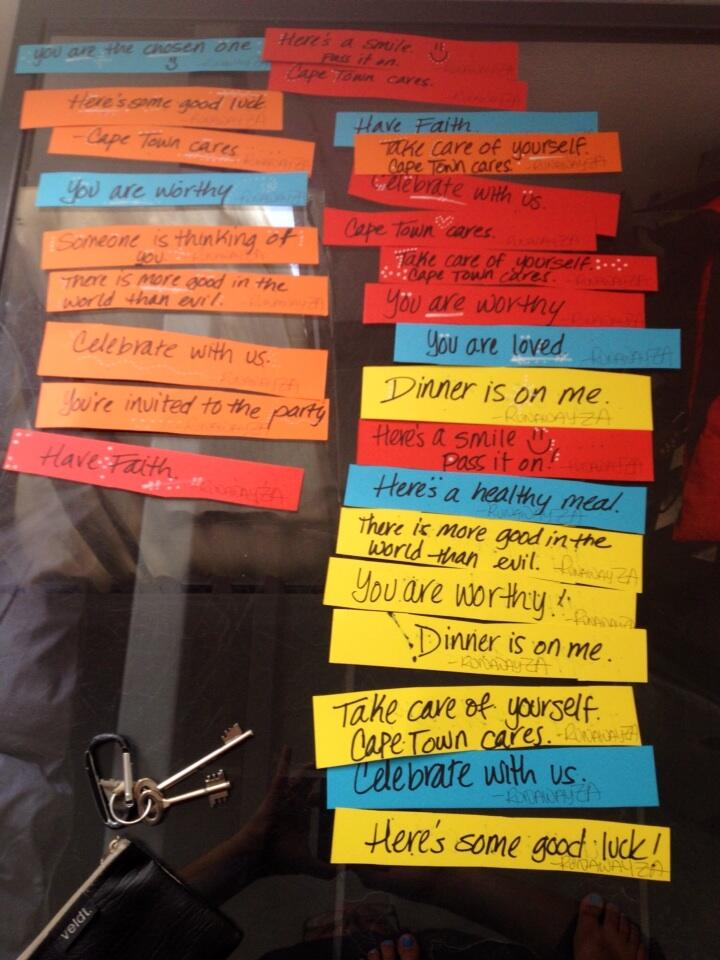 you are the chosen one
RUNAWAYZA
Here's some good luck
RUNAWAYZA
-Cape Town cares
RUNAWAYZA
You are worthy
RUNAWAYZA
Someone is thinking of
you
RUNAWAYZA
There is more good in the
world than evil.
-RUNAWAYZA
Celebrate with us.
RUNAWAYZA
You're invited to the party
RUNAWAYZA
Have Faith
-RUNAWAYZA
Here's a smile.
pass it on.
RUNAWAYZA
Cape Town cares.
Have Faith
Take care of yourself.
Cape Town cares.
-RUNAWAYZA
Celebrate with us.
Cape Town cares.
RUNAWAYZA
Take care of yourself.
Cape Town cares.
RUNAWAYZA
You are worthy
RUNAWAYZA
You are loved
-RUNAWAYZA
Dinner is on me.
-RUNAWAYZA
Here's a smile
pass it on!
RUNAWAYZA
Here's a healthy meal.
-RUNAWAYZA
There is more good in the
world than evil.
-RUNAWAYZA
You are worthy!
-RUNAWAYZA
Dinner is on me.
-RUNAWAYZA
Take care of yourself.
Cape Town cares.
-RUNAWAYZA
Celebrate with us.
-RUNAWAYZA
Here's some good luck!
-RUNAWAYZA
veldt.